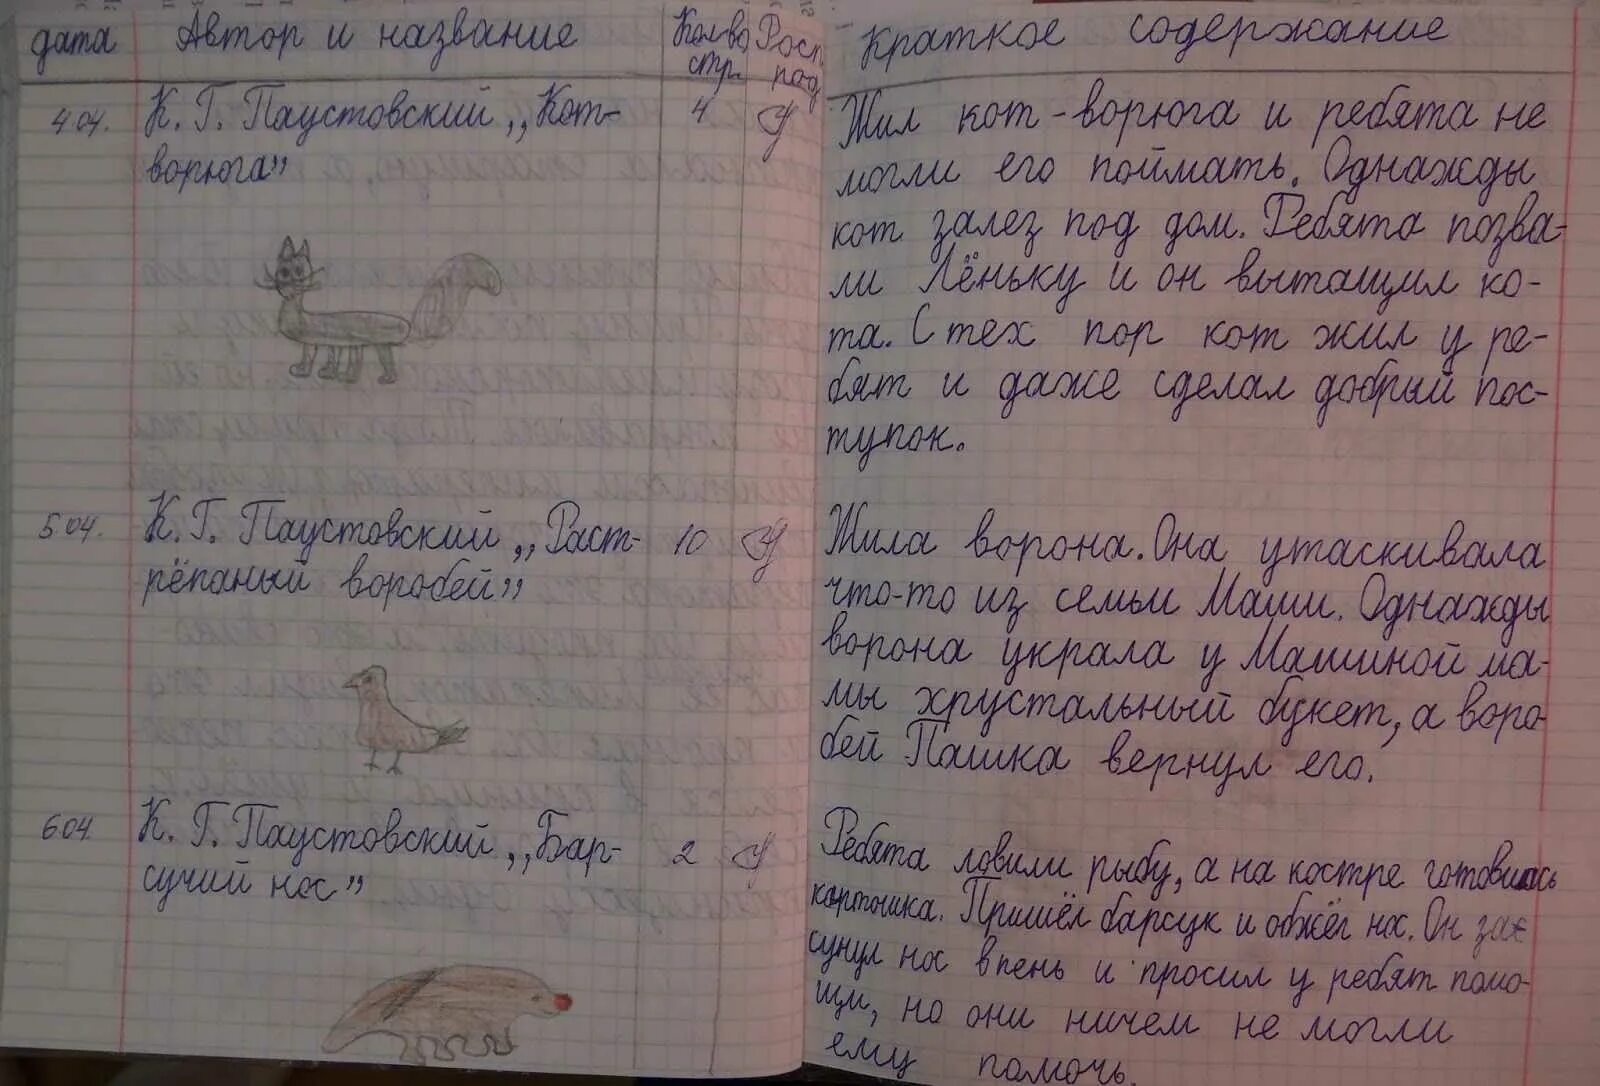 дата Автор и название Кол-во стр. Росп. род. Краткое содержание
4 04. К. Г. Паустовский „Кот-
ворюга”
4
Жил кот-ворюга и ребята не
могли его поймать. Однажды
кот залез под дом. Ребята позва-
ли Лёньку и он вытащил ко-
та. С тех пор кот жил у ре-
бят и даже сделал добрый пос-
тупок.
5 04. К. Г. Паустовский „Раст-
рёпаный воробей”
10
Жила ворона. Она утаскивала
что-то из семьи Маши. Однажды
ворона украла у Машиной ма-
мы хрустальный букет, а воро-
бей Пашка вернул его.
6 04. К. Г. Паустовский „Бар-
сучий нос”
2
Ребята ловили рыбу, а на костре готовилась
картошка. Пришёл барсук и обжёг нос. Он за
сунул нос в пень и просил у ребят помо-
щи, но они ничем не могли
ему помочь.